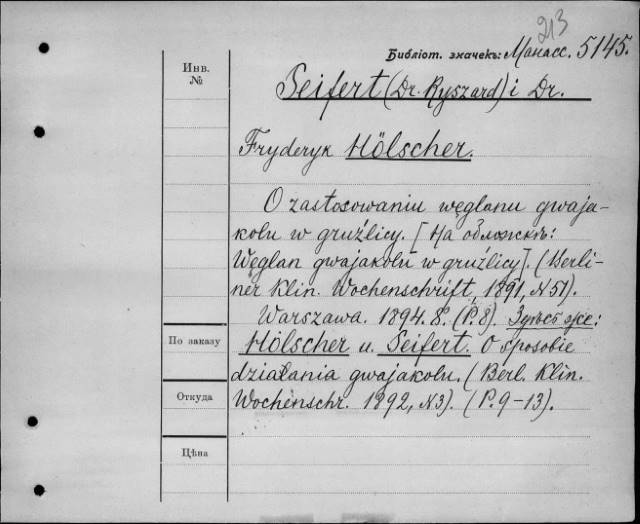 213
Библіот. значекъ: Манасс. 5145.
Инв.
№
Seifert (Dr. Ryszard) i Dr.
Fryderyk Hölscher.
O zastosowaniu węglanu gwaja-
kolu w gruźlicy. [На обложкѣ:
Węglan gwajakolu w gruźlicy]. (Berli-
ner Klin. Wochenschrift, 1891, N51).
Warszawa. 1894. 8°. (P. 8). Здѣсь же:
По заказу
Hölscher и Seifert. O sposobie
działania gwajakolu. (Berl. Klin.
Откуда
Wochenschr. 1892, N3). (P. 9-13).
Цѣна